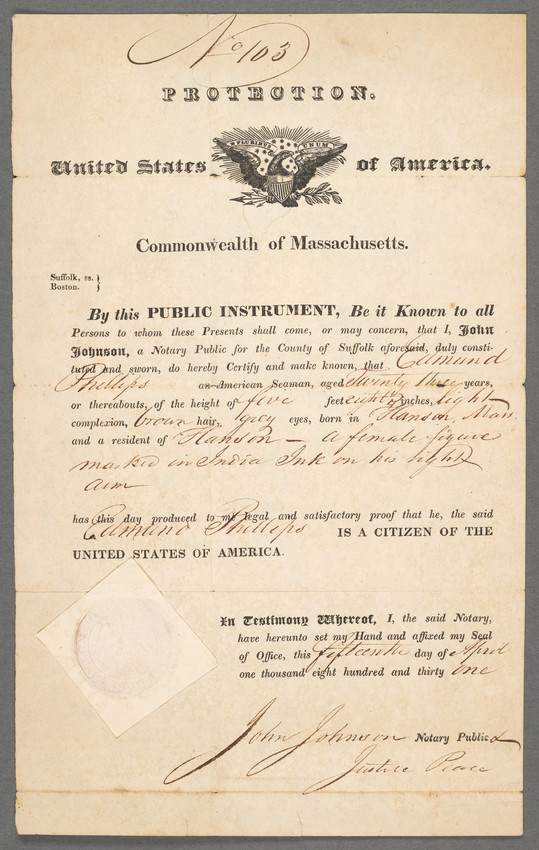 No 103
PROTECTION.
E PLURIBUS UNUM
United States of America.
Commonwealth of Massachusetts.
Suffolk, ss. }
Boston. }
By this PUBLIC INSTRUMENT, Be it Known to all
Persons to whom these Presents shall come, or may concern, that I, John
Johnson, a Notary Public for the County of Suffolk aforesaid, duly consti-
tuted and sworn, do hereby Certify and make known, that Edmund
Phillips an American Seaman, aged twenty three years,
or thereabouts, of the height of five feet eight inches, light
complexion, brown hair, grey eyes, born in Hanson, Mass
and a resident of Hanson – a female figure
marked in India Ink on his right
arm
has this day produced to me legal and satisfactory proof that he, the said
Edmund Phillips IS A CITIZEN OF THE
UNITED STATES OF AMERICA.
In Testimony Whereof, I, the said Notary,
have hereunto set my Hand and affixed my Seal
of Office, this fifteenth day of April
one thousand eight hundred and thirty one
John Johnson Notary Public &
Justice Peace